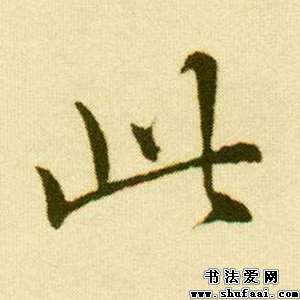 此
书法爱网
www.shufaai.com